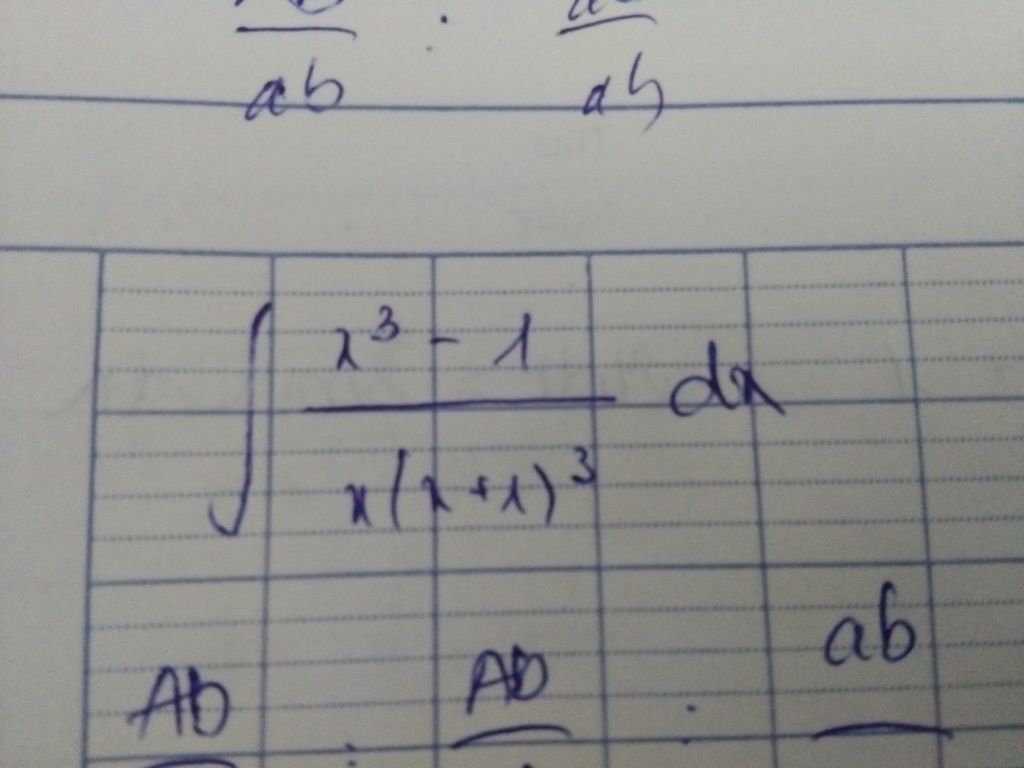 ab : ab
∫ x³ - 1 / x(x+1)³ dx
Ab : Ab : ab